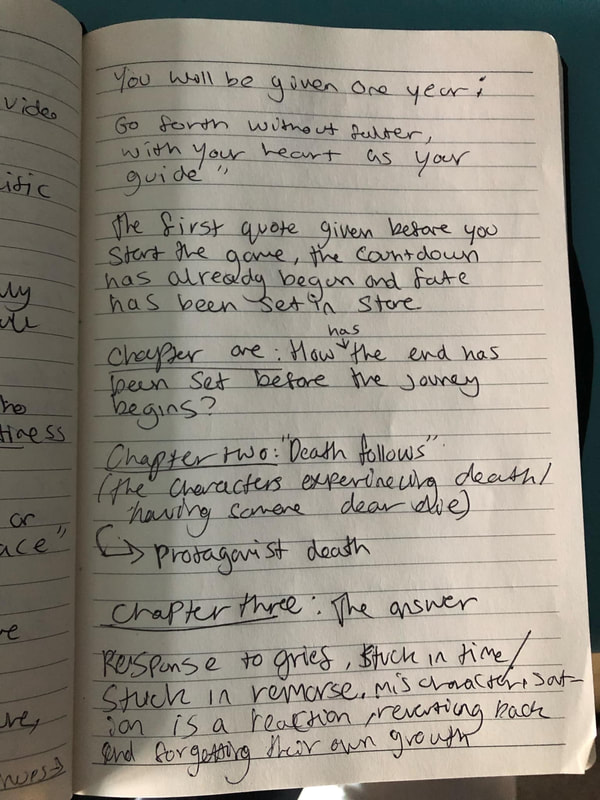 video
ific
You will be given one year;
Go forth without falter,
with your heart as your
guide"
The first quote given before you
start the game, the countdown
has already begun and fate
has been set in stone
has
Chapter one: How the end has
been set before the journey
begins?
Chapter two: "Death follows"
(the characters experiencing death/
having someone dear die)
→ Protagonist death
Chapter three: The answer
Response to grief, stuck in time/
stuck in remorse. mischaracterisat-
ion is a reaction, reverting back
and forgetting their own growth
or
ace"